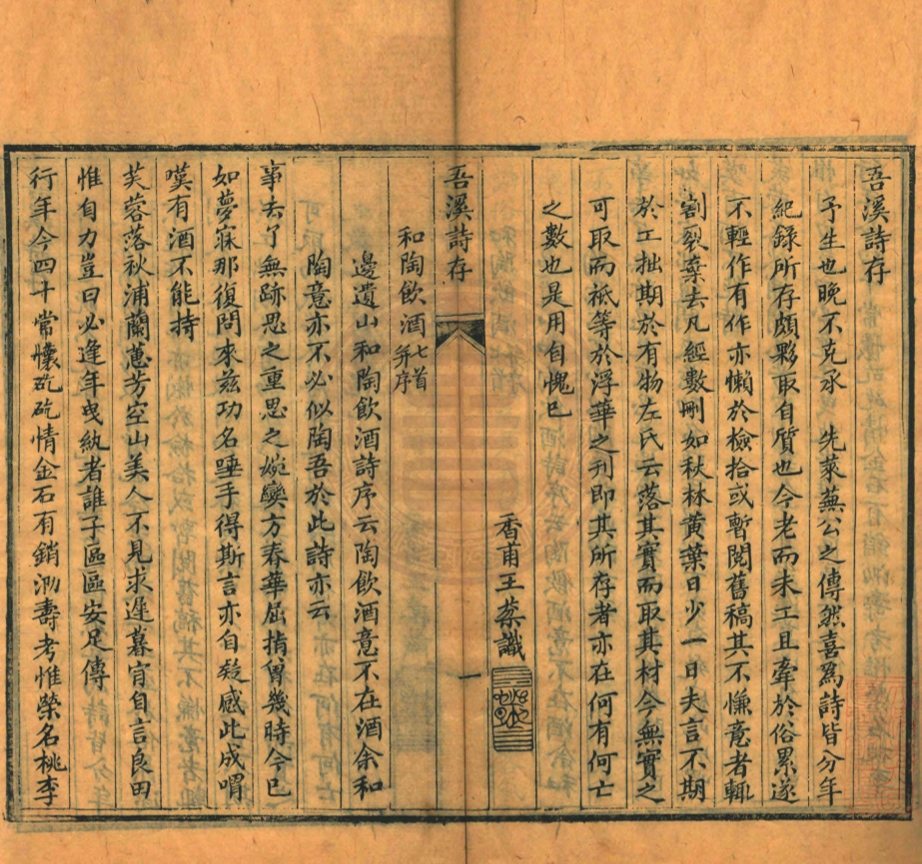 吾溪詩存
予生也晚不克承　先萊蕪公之傳然喜為詩皆分年
紀錄所存頗夥取自質也今老而未工且牽於俗累遂
不輕作有作亦懶於檢拾或暫閱舊稿其不慊意者輒
割裂棄去凡經數刪如秋林黃葉日少一日夫言不期
於工拙期於有物左氏云落其實而取其材今無實之
可取而祗等於浮華之刊即其所存者亦在何有何亡
之數也是用自愧已
香甫王蔡識
吾溪詩存
一
和陶飲酒七首并序
邊遺山和陶飲酒詩序云陶飲酒意不在酒余和
陶意亦不必似陶吾於此詩亦云
事去了無跡思之重思之婉孌方春華屈指曾幾時今已
如夢寐那復問來茲功名唾手得斯言亦自疑感此成喟
嘆有酒不能持
芙蓉落秋浦蘭蕙芳空山美人不見求遲暮甯自言良田
惟自力豈曰必逢年曳紈者誰子區區安足傳
行年今四十常懷矻矻情金石有銷泐壽考惟榮名桃李